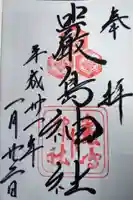 奉拝
嚴島神社
平成卅一年
一月廿二日